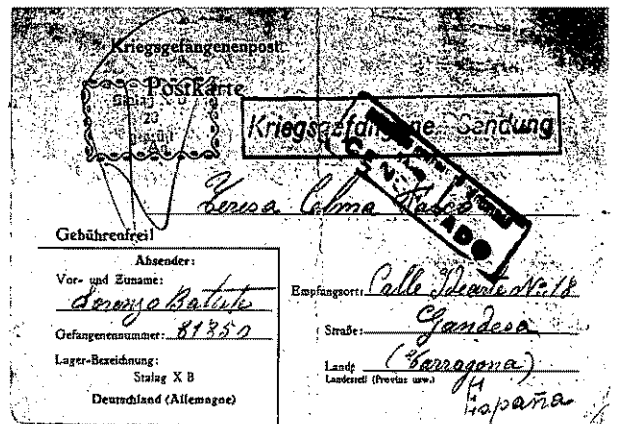 Kriegsgefangenenpost
Postkarte
Stalag X
23
Geprüft
Kriegsgefangene - Sendung
CENSURADO
Teresa Celma
Gebührenfrei!
Absender:
Vor- und Zuname:
Lorenzo Batiste
Gefangenennummer: 81850
Lager-Bezeichnung:
Stalag X B
Deutschland (Allemagne)
Empfangsort: Calle No: 18
Straße: Gandesa
Land: (Tarragona)
Landesteil (Provinz usw.)
España